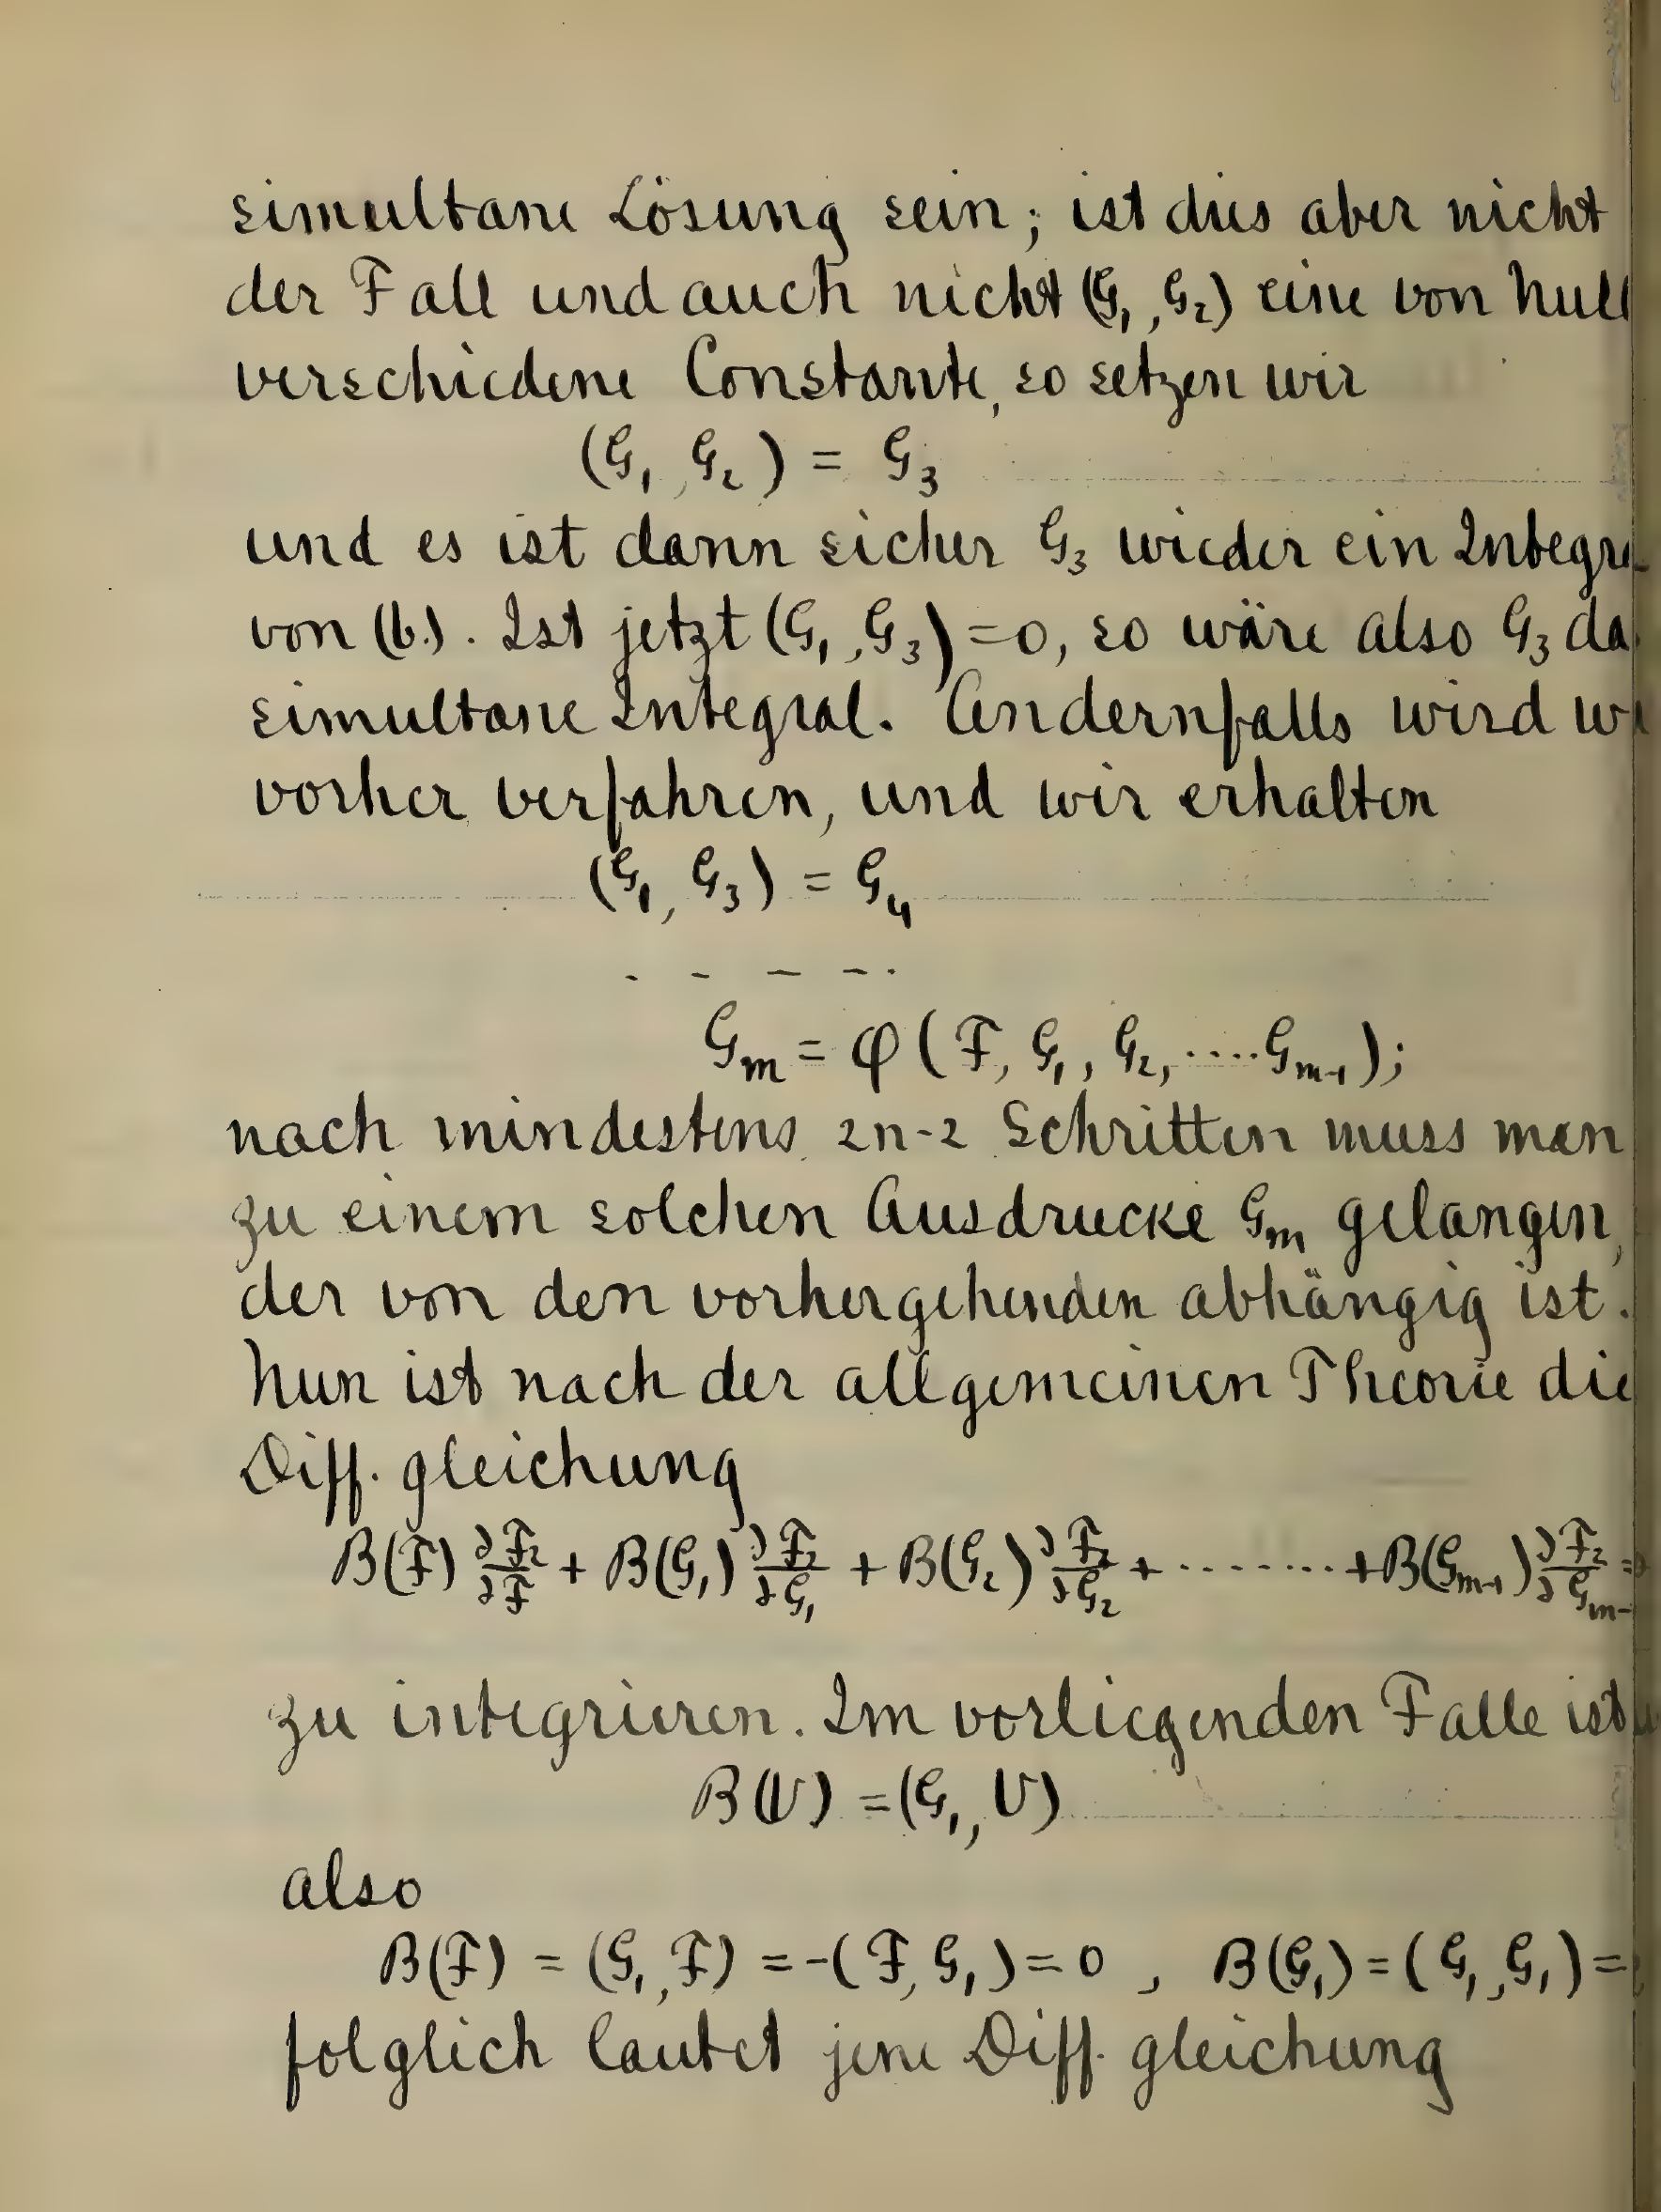 simultane Lösung sein; ist dies aber nicht
der Fall und auch nicht (G₁, G₂) eine von Null
verschiedene Constante, so setzen wir
(G₁, G₂) = G₃
und es ist dann sicher G₃ wieder ein Integra
von (b.). Ist jetzt (G₁, G₃) = 0, so wäre also G₃ da
simultane Integral. Andernfalls wird wi
vorher verfahren, und wir erhalten
(G₁, G₃) = G₄
. – – – – .
Gₘ = φ (F, G₁, G₂, ..... Gₘ₋₁);
nach mindestens 2n-2 Schritten muss man
zu einem solchen Ausdrucke Gₘ gelangen,
der von den vorhergehenden abhängig ist.
Nun ist nach der allgemeinen Theorie die
Diff. gleichung
B(F) ∂F₂/∂F + B(G₁) ∂F₂/∂G₁ + B(G₂) ∂F₂/∂G₂ + ........ + B(Gₘ₋₁) ∂F₂/∂Gₘ₋ =
zu integrieren. Im vorliegenden Falle ist
B(U) = (G₁, U)
also
B(F) = (G₁, F) = -(F, G₁) = 0 , B(G₁) = (G₁, G₁) =
folglich lautet jene Diff. gleichung